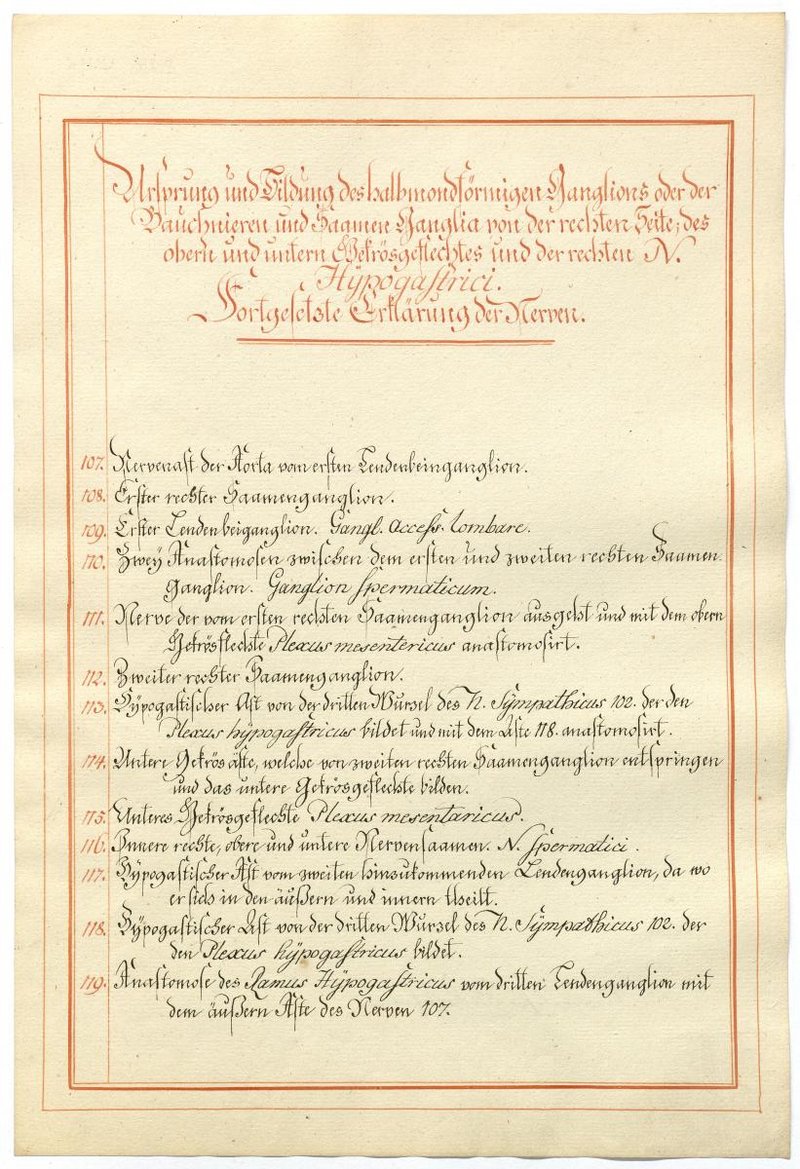 Ursprung und Bildung des halbmondförmigen Ganglions oder der
Bauchnieren und Saamen Ganglia von der rechten Seite, des
obern und untern Gekrösgeflechtes und der rechten N.
Hÿpogastrici.
Fortgesetzte Erklärung der Nerven.
107. Nervenast der Aorta vom ersten Lendenbeinganglion.
108. Erster rechter Saamenganglion.
109. Erster Lendenbeiganglion. Gangl. access. lombare.
110. Zwey Anastomosen zwischen dem ersten und zweiten rechten Saamen-
Ganglion. Ganglion spermaticum.
111. Nerve der vom ersten rechten Saamenganglion ausgeht und mit dem obern
Gekrösflechte Plexus mesentericus anastomosirt.
112. Zweiter rechter Saamenganglion.
113. Hÿpogastischer Ast von der dritten Wursel des N. Sÿmpathicus 102. der den
Plexus hÿpogastricus bildet und mit dem Aste 118. anastomosirt.
114. Untere Gekrösäste, welche von zweiten rechten Saamenganglion entspringen
und das untere Gekrösgeflechte bilden.
115. Unteres Gekrösgeflechte Plexus mesentaricus.
116. Innere rechte, obere und untere Nervensaamen. N. spermatici.
117. Hÿpogastischer Ast vom zweiten hinzukommenden Lendenganglion, da wo
er sich in den äußern und innern theilt.
118. Hÿpogastischer Ast von der dritten Wursel des N. Sÿmpathicus 102. der
den Plexus hÿpogastricus bildet.
119. Anastomose des Ramus Hÿpogastricus vom dritten Lendenganglion mit
dem äußern Aste des Nerven 107.